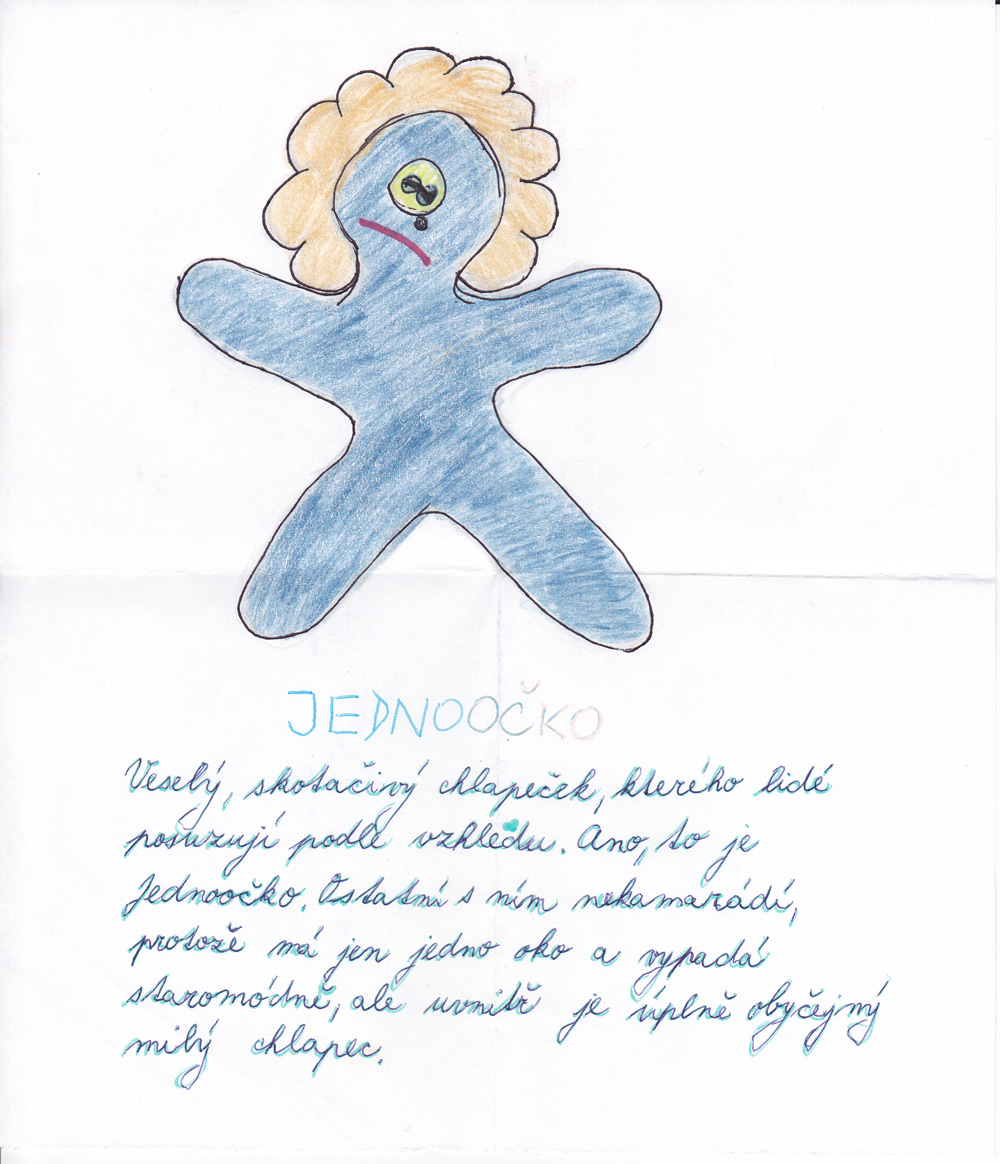 JEDNOOČKO
Veselý, skotačivý chlapeček, kterého lidé
posuzují podle vzhledu. Ano, to je
Jednoočko. Ostatní s ním nekamarádí,
protože má jen jedno oko a vypadá
staromódně, ale uvnitř je úplně obyčejný
milý chlapec.